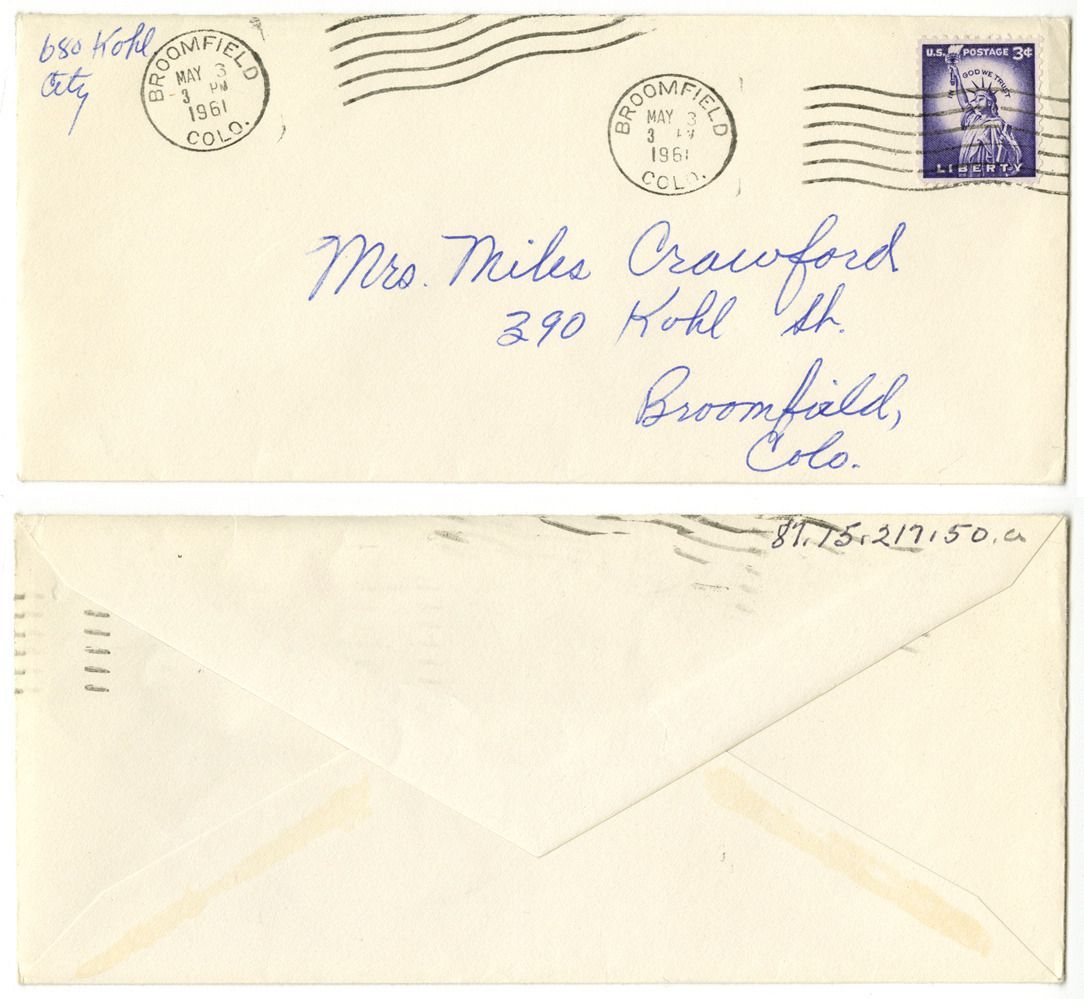 680 Kohl
City
BROOMFIELD
MAY 3
3 PM
1961
COLO.
BROOMFIELD
MAY 3
3 PM
1961
COLO.
U.S. POSTAGE 3¢
IN GOD WE TRUST
LIBERTY
Mrs. Miles Crawford
390 Kohl St.
Broomfield,
Colo.
87.15.217.50.a